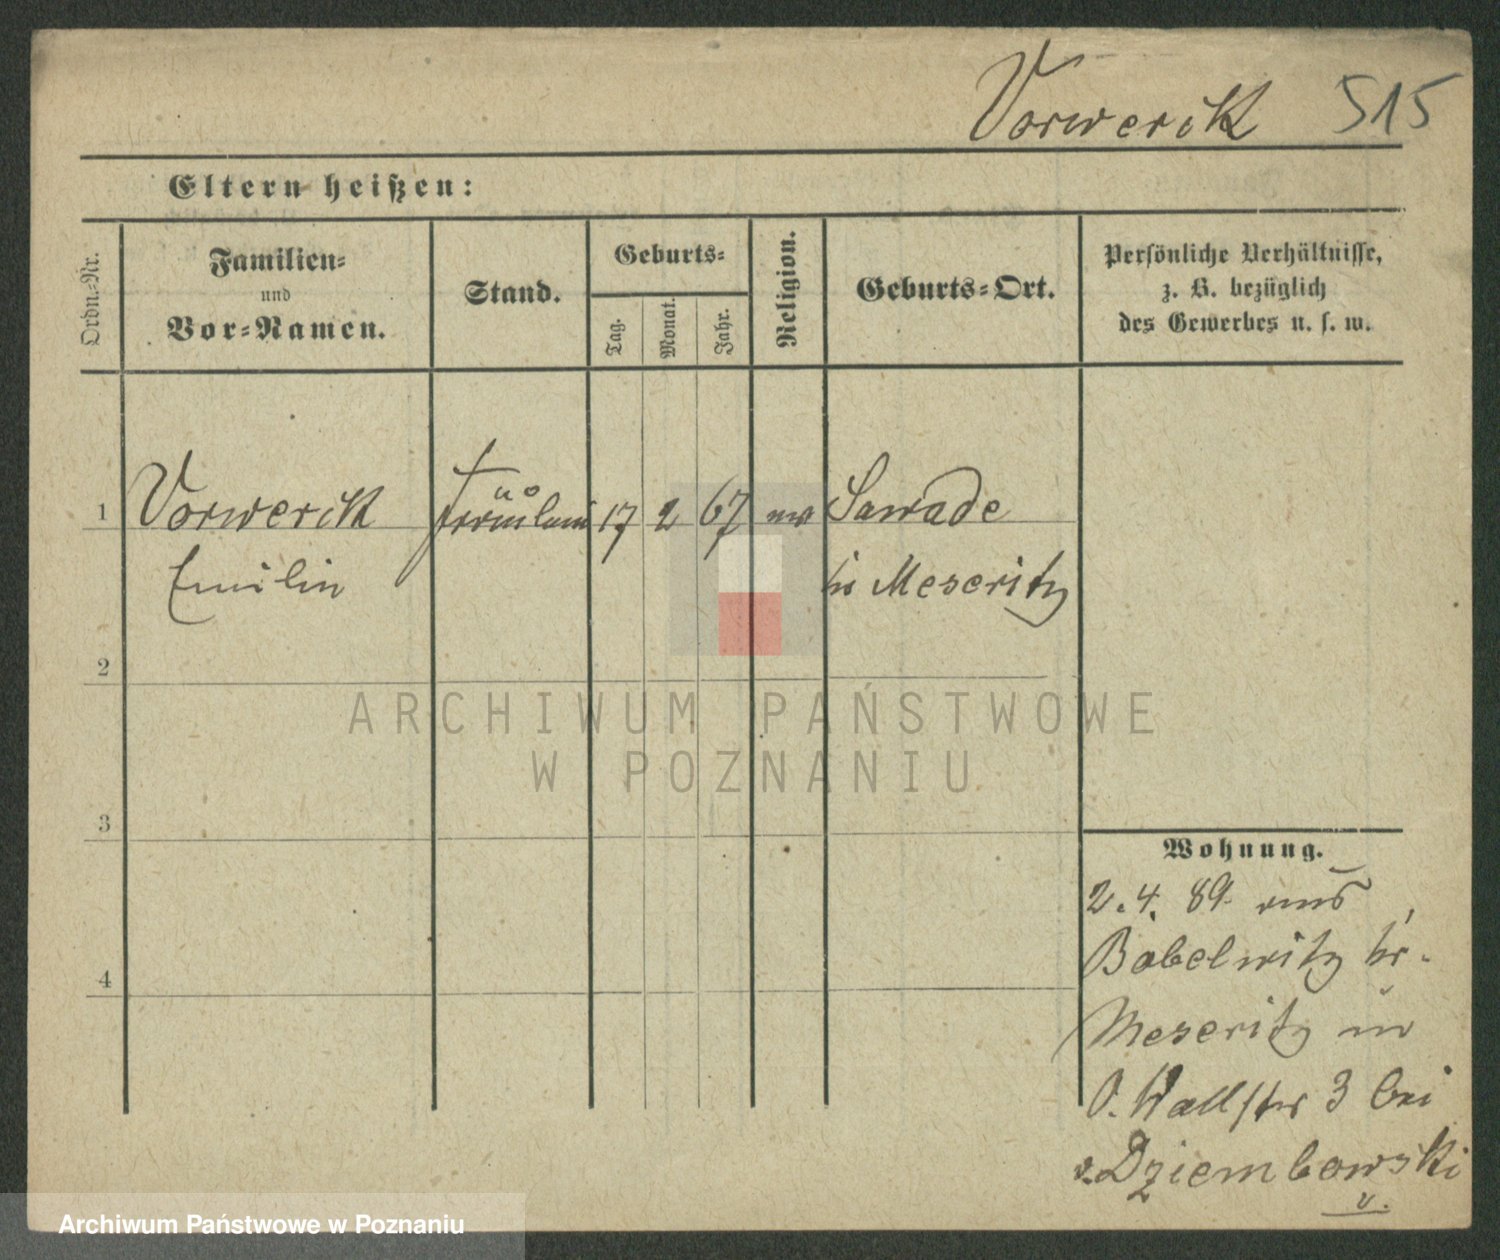 Vorwerik 515
Eltern heißen:
Ordn.-Nr.
Familien-
und
Vor-Namen.
Stand.
Geburts-
Tag.
Monat.
Jahr.
Religion.
Geburts-Ort.
Persönliche Verhältnisse,
z. B. bezüglich
des Gewerbes u. s. w.
1 Vorwerik Fräulein 17 2 67 ev Sawade
Emilin Kr Meseritz
2
3
4
Wohnung.
2. 4. 89. aus
Bobelwitz Kr.
Meseritz in
O. Wallstr 3 bei
v. Dziembowski
v.
ARCHIWUM PAŃSTWOWE
W POZNANIU
Archiwum Państwowe w Poznaniu